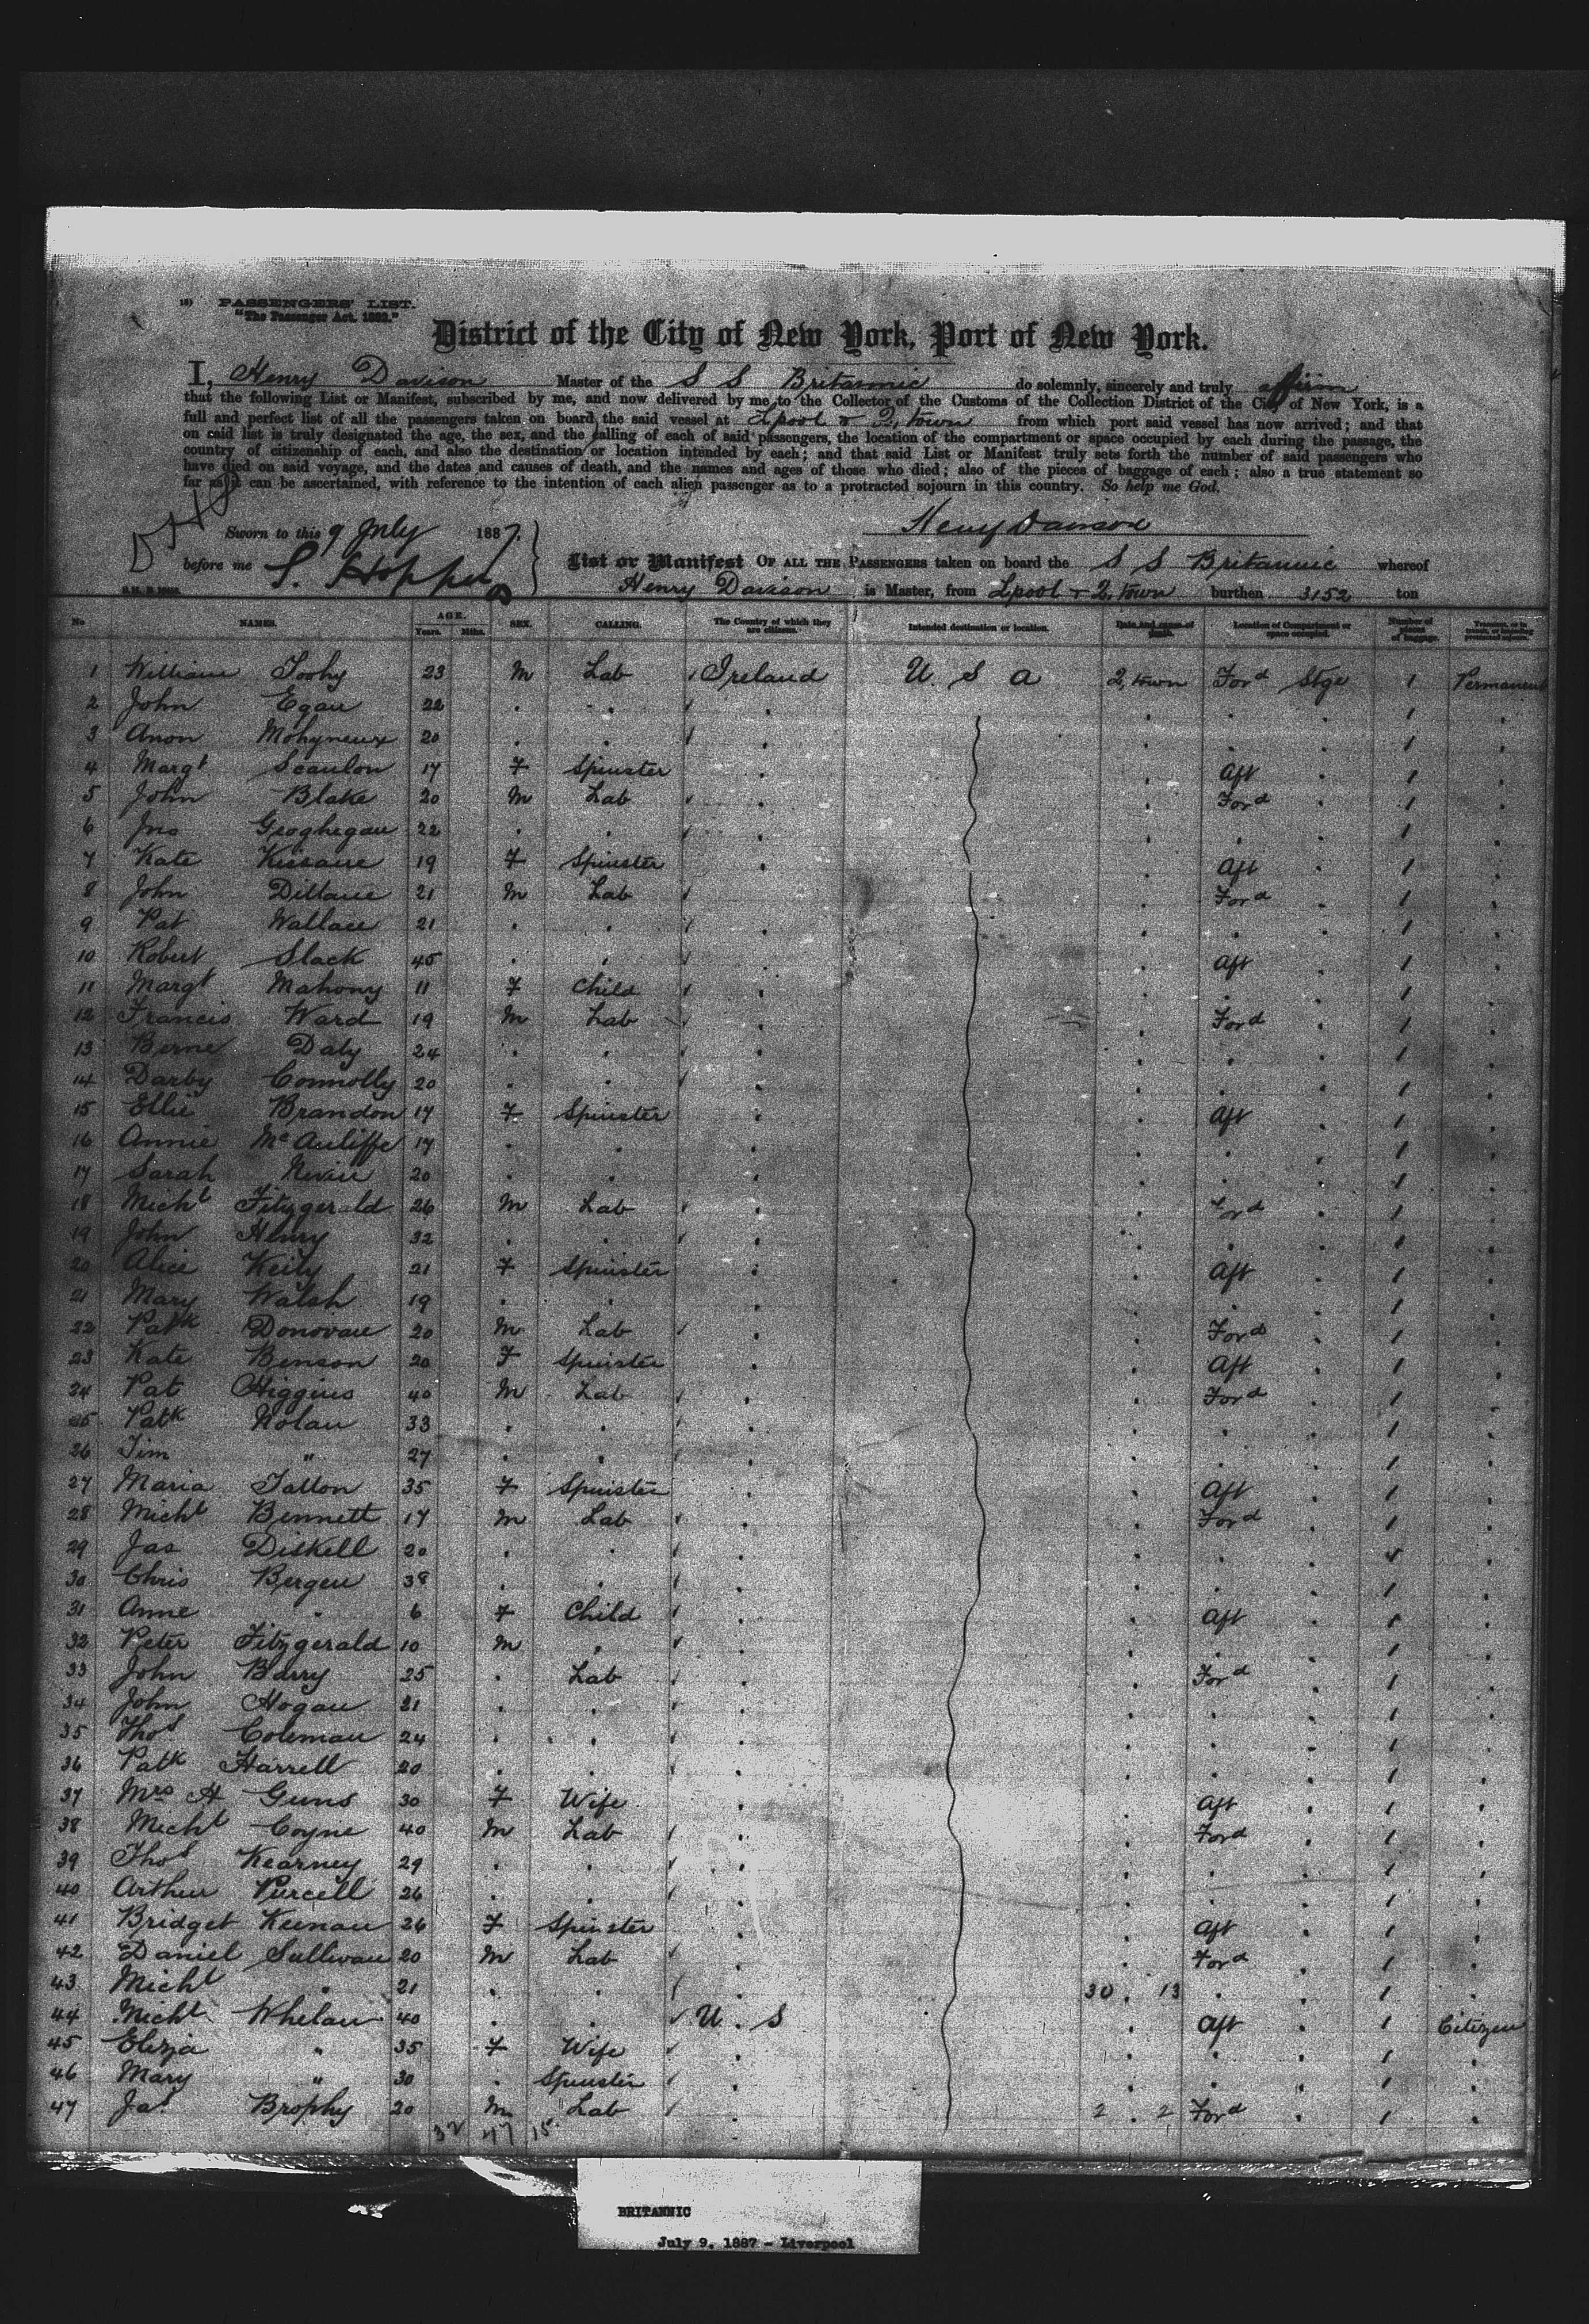 PASSENGERS' LIST.
"The Passenger Act, 1882."
District of the City of New York, Port of New York.
I, Henry Davison Master of the S S Britannic do solemnly, sincerely and truly affirm
that the following List or Manifest, subscribed by me, and now delivered by me to the Collector of the Customs of the Collection District of the City of New York, is a
full and perfect list of all the passengers taken on board the said vessel at Lpool & Q.town from which port said vessel has now arrived; and that
on said list is truly designated the age, the sex, and the calling of each of said passengers, the location of the compartment or space occupied by each during the passage, the
country of citizenship of each, and also the destination or location intended by each; and that said List or Manifest truly sets forth the number of said passengers who
have died on said voyage, and the dates and causes of death, and the names and ages of those who died; also of the pieces of baggage of each; also a true statement so
far as it can be ascertained, with reference to the intention of each alien passenger as to a protracted sojourn in this country. So help me God.
Sworn to this 9 July 1887. Henry Davison
before me S. Hopper List or Manifest OF ALL THE PASSENGERS taken on board the S S Britannic whereof
Henry Davison is Master, from Lpool & Q.town burthen 3152 ton
No NAMES. AGE. Years. Mths. SEX. CALLING. The Country of which they are citizens. Intended destination or location. Date and cause of death. Location of Compartment or space occupied. Number of pieces of baggage.
1 William Toohy 23 M Lab Ireland U. S A Q.town Ford Stge 1 Permanent
2 John Egan 22 . . . . . . 1 .
3 Anon Mohyneux 20 . . . . . . 1 .
4 Margt Scanlon 17 F Spinster . . Aft . 1 .
5 John Blake 20 M Lab . . Ford . 1 .
6 Jno Geoghegan 22 . . . . . . 1 .
7 Kate Kissane 19 F Spinster . . Aft . 1 .
8 John Dillane 21 M Lab . . Ford . 1 .
9 Pat Wallace 21 . . . . . . 1 .
10 Robert Slack 45 . . . . Aft . 1 .
11 Margt Mahony 11 F Child . . . . 1 .
12 Francis Ward 19 M Lab . . Ford . 1 .
13 Berne Daly 24 . . . . . . 1 .
14 Darby Connolly 20 . . . . . . 1 .
15 Ellie Brandon 17 F Spinster . . Aft . 1 .
16 Annie McAuliffe 17 . . . . . . 1 .
17 Sarah Nevin 20 . . . . . . 1 .
18 Michl Fitzgerald 26 M Lab . . Ford . 1 .
19 John Henry 32 . . . . . . 1 .
20 Alice Keily 21 F Spinster . . Aft . 1 .
21 Mary Walsh 19 . . . . . . 1 .
22 Patk Donovan 20 M Lab . . Ford . 1 .
23 Kate Benson 20 F Spinster . . Aft . 1 .
24 Pat Higgins 40 M Lab . . Ford . 1 .
25 Patk Nolan 33 . . . . . . 1 .
26 Tim " 27 . . . . . . 1 .
27 Maria Tatton 35 F Spinster . . Aft . 1 .
28 Michl Bennett 17 M Lab . . Ford . 1 .
29 Jas Diskell 20 . . . . . . 1 .
30 Chris Bergen 38 . . . . . . 1 .
31 Anne " 6 F Child . . Aft . 1 .
32 Peter Fitzgerald 10 M . . . . . 1 .
33 John Barry 25 . Lab . . Ford . 1 .
34 John Hogan 21 . . . . . . 1 .
35 Thos Coleman 24 . . . . . . 1 .
36 Patk Harrell 20 . . . . . . 1 .
37 Mrs H Guns 30 F Wife . . Aft . 1 .
38 Michl Coyne 40 M Lab . . Ford . 1 .
39 Thos Kearney 29 . . . . . . 1 .
40 Arthur Purcell 26 . . . . . . 1 .
41 Bridget Keenan 26 F Spinster . . Aft . 1 .
42 Daniel Sullivan 20 M Lab . . Ford . 1 .
43 Michl " 21 . . . 30 . 13 . . 1 .
44 Michl Whelan 40 . . U . S . Aft . 1 Citizen
45 Eliza " 35 F Wife . . . . 1 .
46 Mary " 30 . Spinster . . . . 1 .
47 Jas Brophy 20 M Lab . 2 . 2 Ford . 1 .
32 47 15
BRITANNIC
July 9, 1887 - Liverpool